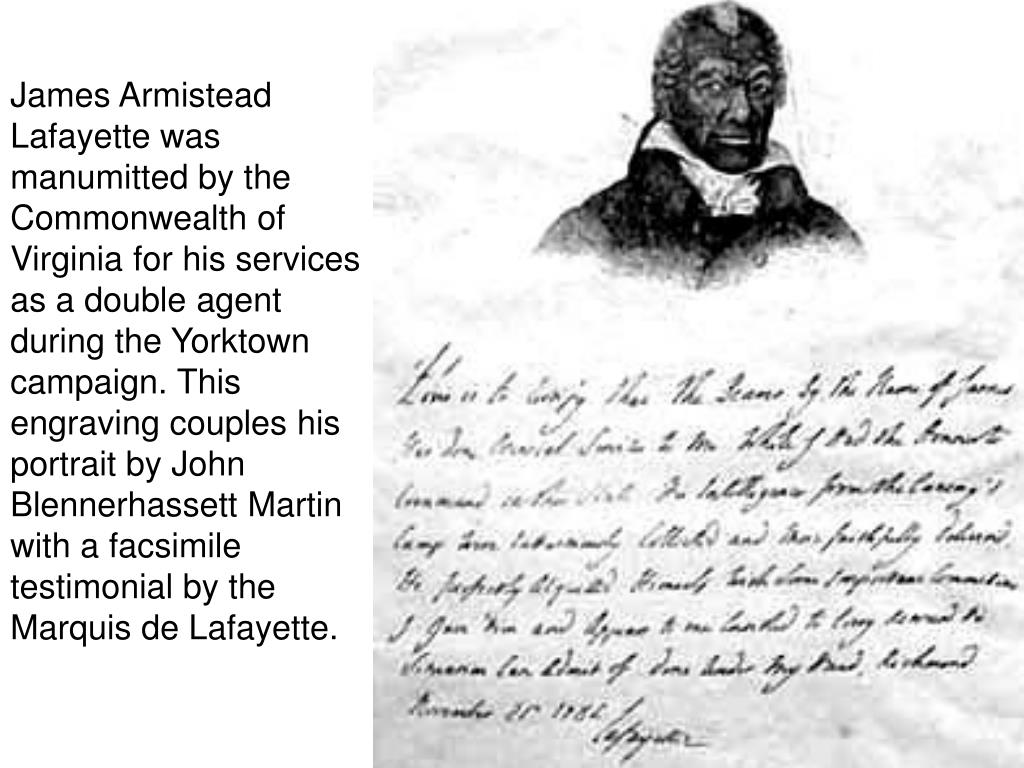 James Armistead
Lafayette was
manumitted by the
Commonwealth of
Virginia for his services
as a double agent
during the Yorktown
campaign. This
engraving couples his
portrait by John
Blennerhassett Martin
with a facsimile
testimonial by the
Marquis de Lafayette.
This is to that the by the Name of James
Has done Services to me While I had the
Command in this State. His Intelligence from the Enemy's
Camp were Collected and More faithfully
He perfectly Himself with some Important
I Gave him and Appears to me to every
Can Admit of. Done Under My Hand, Richmond
November 21st 1784
Lafayette